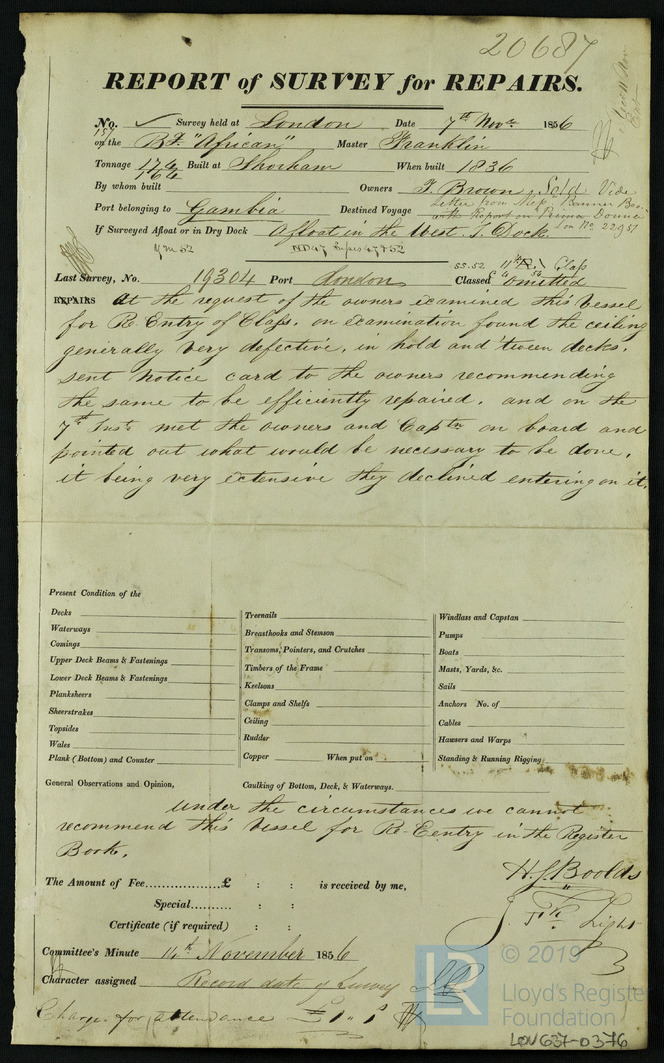 20687
REPORT of SURVEY for REPAIRS.
No. ✓ Survey held at London Date 7th Novr 1856
157
on the Bk. "African" Master Franklin
Tonnage 174 Built at Shorham When built 1836
164
By whom built Owners T. Brown Sold Vide
Letter from
Port belonging to Gambia Destined Voyage
on No. 22951
If Surveyed Afloat or in Dry Dock Afloat in the West I. Dock
Last Survey, No. 19304 Port London Classed omitted
REPAIRS At the request of the owners examined this Vessel
for Re Entry of Class. on examination found the ceiling
generally very defective, in hold and 'tween decks.
sent Notice card to the owners recommending
the same to be efficiently repaired. and on the
7th Inst met the owners and Captn on board and
pointed out what would be necessary to be done,
it being very extensive they declined entering on it.
Present Condition of the
Decks
Waterways
Comings
Upper Deck Beams & Fastenings
Lower Deck Beams & Fastenings
Planksheers
Sheerstrakes
Topsides
Wales
Plank (Bottom) and Counter
Treenails
Breasthooks and Stemson
Transoms, Pointers, and Crutches
Timbers of the Frame
Keelsons
Clamps and Shelfs
Ceiling
Rudder
Copper When put on
Windlass and Capstan
Pumps
Boats
Masts, Yards, &c.
Sails
Anchors No. of
Cables
Hawsers and Warps
Standing & Running Rigging
General Observations and Opinion, Caulking of Bottom, Deck, & Waterways.
under the circumstances we cannot
recommend this Vessel for Re-Entry in the Register
Book.
H. J. Boolds
The Amount of Fee.................£ : : is received by me,
Special.......... : :
J. Light
Certificate (if required) : :
Committee's Minute 14th November 1856
Character assigned Record date of Survey
Charge for attendance £1 " 1
LR © 2019
Lloyd's Register
Foundation
LON637-0376